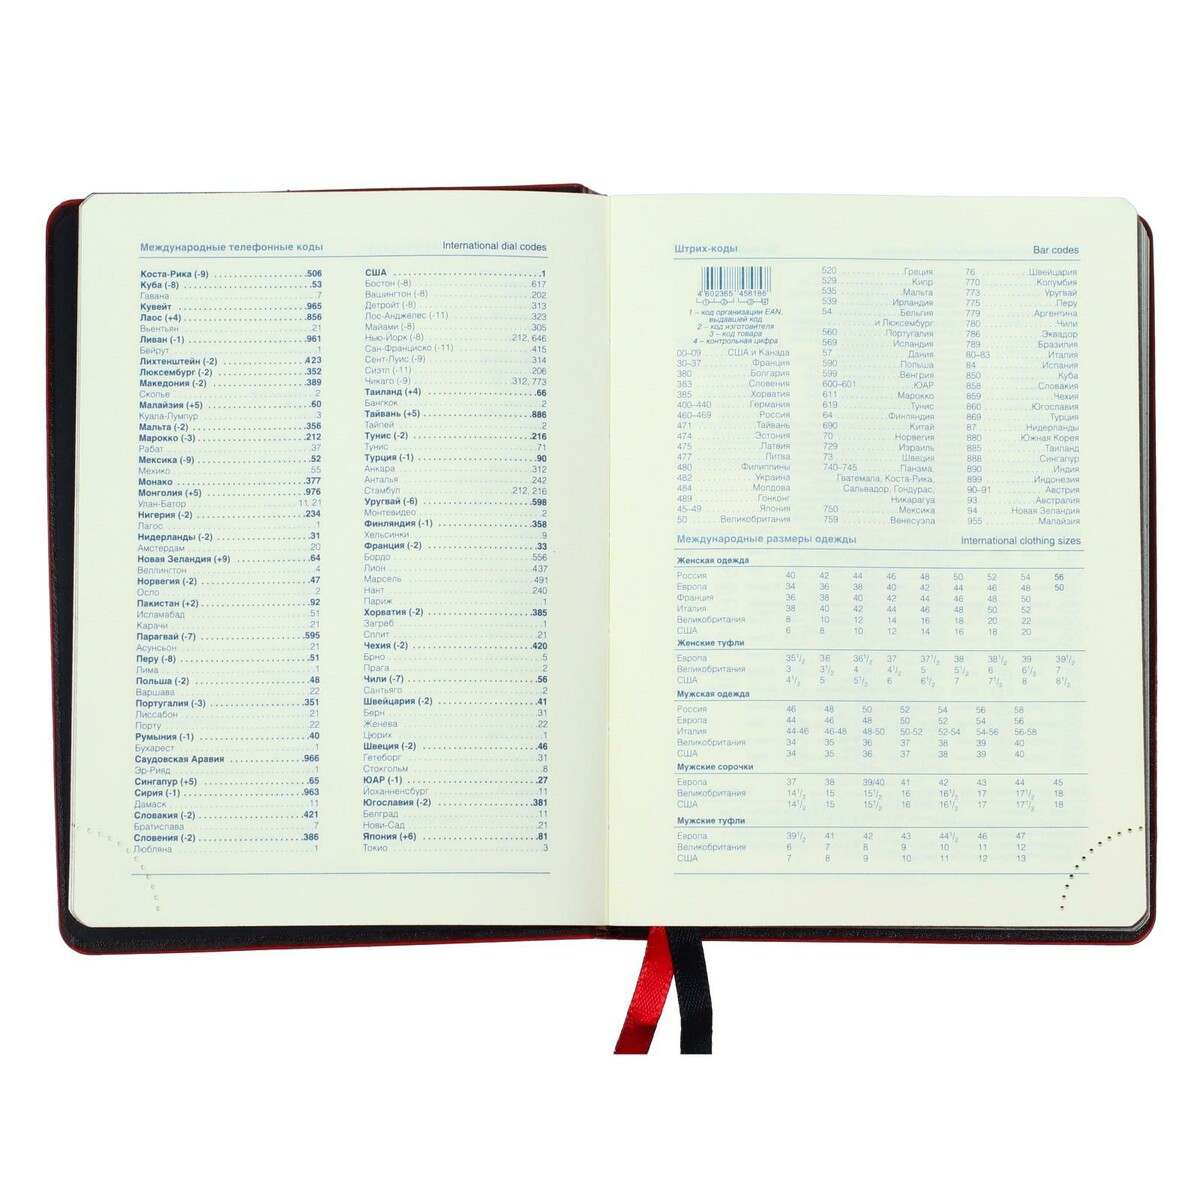 Международные телефонные коды International dial codes
Коста-Рика (-9) 506
Куба (-8) 53
Гавана 7
Кувейт 965
Лаос (+4) 856
Вьентьян 21
Ливан (-1) 961
Бейрут 1
Лихтенштейн (-2) 423
Люксембург (-2) 352
Македония (-2) 389
Скопье 2
Малайзия (+5) 60
Куала-Лумпур 3
Мальта (-2) 356
Марокко (-3) 212
Рабат 37
Мексика (-9) 52
Мехико 55
Монако 377
Монголия (+5) 976
Улан-Батор 11, 21
Нигерия (-2) 234
Лагос 1
Нидерланды (-2) 31
Амстердам 20
Новая Зеландия (+9) 64
Веллингтон 4
Норвегия (-2) 47
Осло 2
Пакистан (+2) 92
Исламабад 51
Карачи 21
Парагвай (-7) 595
Асунсьон 21
Перу (-8) 51
Лима 1
Польша (-2) 48
Варшава 22
Португалия (-3) 351
Лиссабон 21
Порту 22
Румыния (-1) 40
Бухарест 1
Саудовская Аравия 966
Эр-Рияд 1
Сингапур (+5) 65
Сирия (-1) 963
Дамаск 11
Словакия (-2) 421
Братислава 7
Словения (-2) 386
Любляна 1
США 1
Бостон (-8) 617
Вашингтон (-8) 202
Детройт (-8) 313
Лос-Анджелес (-11) 323
Майами (-8) 305
Нью-Йорк (-8) 212, 646
Сан-Франциско (-11) 415
Сент-Луис (-9) 314
Сиэтл (-11) 206
Чикаго (-9) 312, 773
Таиланд (+4) 66
Бангкок 2
Тайвань (+5) 886
Тайпей 2
Тунис (-2) 216
Тунис 71
Турция (-1) 90
Анкара 312
Анталья 242
Стамбул 212, 216
Уругвай (-6) 598
Монтевидео 2
Финляндия (-1) 358
Хельсинки 9
Франция (-2) 33
Бордо 556
Лион 437
Марсель 491
Нант 240
Париж 1
Хорватия (-2) 385
Загреб 1
Сплит 21
Чехия (-2) 420
Брно 5
Прага 2
Чили (-7) 56
Сантьяго 2
Швейцария (-2) 41
Берн 31
Женева 22
Цюрих 1
Швеция (-2) 46
Гетеборг 31
Стокгольм 8
ЮАР (-1) 27
Йоханненсбург 11
Югославия (-2) 381
Белград 11
Нови-Сад 21
Япония (+6) 81
Токио 3
Штрих-коды Bar codes
4 602365 458186
1 – код организации EAN,
выдавшей код
2 – код изготовителя
3 – код товара
4 – контрольная цифра
00–09 США и Канада
30–37 Франция
380 Болгария
383 Словения
385 Хорватия
400–440 Германия
460–469 Россия
471 Тайвань
474 Эстония
475 Латвия
477 Литва
480 Филиппины
482 Украина
484 Молдова
489 Гонконг
45–49 Япония
50 Великобритания
520 Греция
529 Кипр
535 Мальта
539 Ирландия
54 Бельгия
и Люксембург
560 Португалия
569 Исландия
57 Дания
590 Польша
599 Венгрия
600–601 ЮАР
611 Марокко
619 Тунис
64 Финляндия
690 Китай
70 Норвегия
729 Израиль
73 Швеция
740–745 Панама,
Гватемала, Коста-Рика,
Сальвадор, Гондурас,
Никарагуа
750 Мексика
759 Венесуэла
76 Швейцария
770 Колумбия
773 Уругвай
775 Перу
779 Аргентина
780 Чили
786 Эквадор
789 Бразилия
80–83 Италия
84 Испания
850 Куба
858 Словакия
859 Чехия
860 Югославия
869 Турция
87 Нидерланды
880 Южная Корея
885 Таиланд
888 Сингапур
890 Индия
899 Индонезия
90–91 Австрия
93 Австралия
94 Новая Зеландия
955 Малайзия
Международные размеры одежды International clothing sizes
Женская одежда
Россия 40 42 44 46 48 50 52 54 56
Европа 34 36 38 40 42 44 46 48 50
Франция 36 38 40 42 44 46 48 50
Италия 38 40 42 44 46 48 50 52
Великобритания 8 10 12 14 16 18 20 22
США 6 8 10 12 14 16 18 20
Женские туфли
Европа 35 1/2 36 36 1/2 37 37 1/2 38 38 1/2 39 39 1/2
Великобритания 3 3 1/2 4 4 1/2 5 5 1/2 6 6 1/2 7
США 4 1/2 5 5 1/2 6 6 1/2 7 7 1/2 8 8 1/2
Мужская одежда
Россия 46 48 50 52 54 56 58
Европа 44 46 48 50 52 54 56
Италия 44-46 46-48 48-50 50-52 52-54 54-56 56-58
Великобритания 34 35 36 37 38 39 40
США 34 35 36 37 38 39 40
Мужские сорочки
Европа 37 38 39/40 41 42 43 44 45
Великобритания 14 1/2 15 15 1/2 16 16 1/2 17 17 1/2 18
США 14 1/2 15 15 1/2 16 16 1/2 17 17 1/2 18
Мужские туфли
Европа 39 1/2 41 42 43 44 1/2 46 47
Великобритания 6 7 8 9 10 11 12
США 7 8 9 10 11 12 13